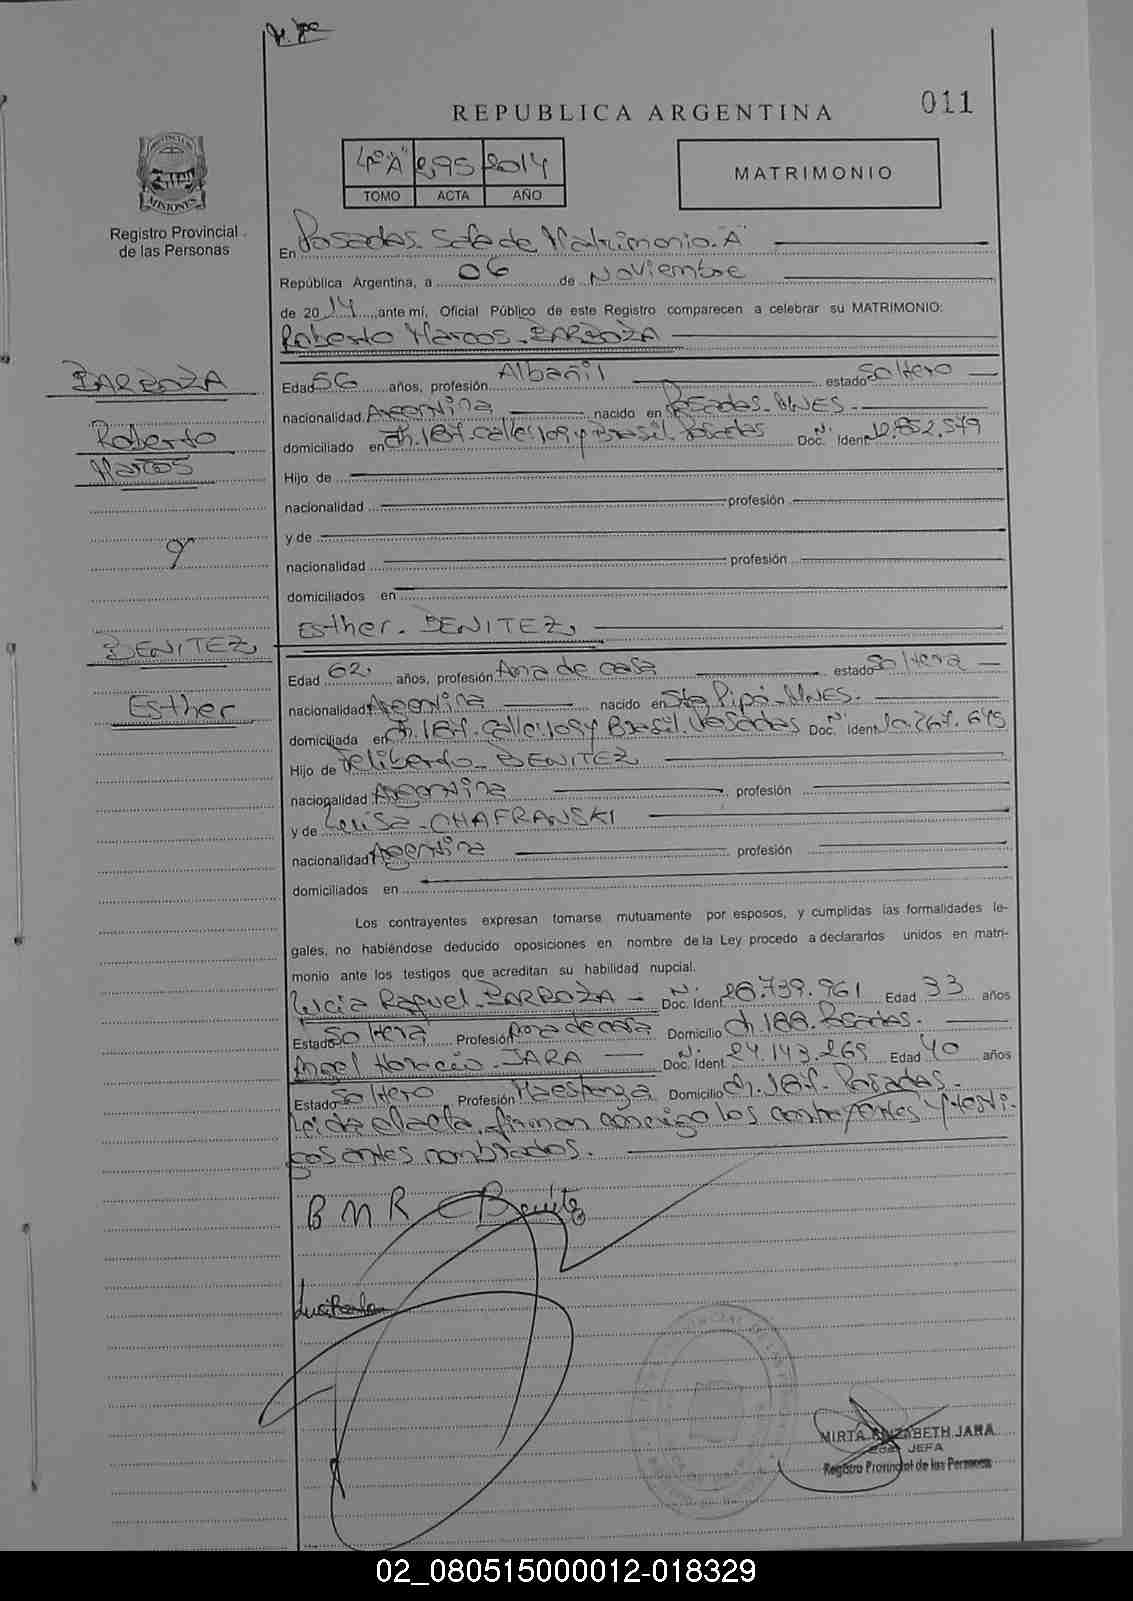 011
REPUBLICA ARGENTINA
4º"A" 295 2014
TOMO ACTA AÑO
MATRIMONIO
Registro Provincial
de las Personas
En Posadas. Sala de Matrimonio. "A"
República Argentina, a 06 de Noviembre
de 2014, ante mí, Oficial Público de este Registro comparecen a celebrar su MATRIMONIO:
Roberto Marcos. BARBOZA
BARBOZA
Roberto
Marcos
y
BENITEZ
Esther
Edad 56 años, profesión Albañil estado Soltero
nacionalidad Argentina nacido en Posadas. MNES.
domiciliado en Ch. 187. Calle: 109 y Brasil. Posadas Doc. Ident. Nº 12.852.579
Hijo de
nacionalidad profesión
y de
nacionalidad profesión
domiciliados en
Esther. BENITEZ
Edad 62. años, profesión Ama de casa estado Soltera
nacionalidad Argentina nacido en Sta Pipó. MNES.
domiciliada en Ch. 187. Calle: 109 y Brasil. Posadas Doc. Ident. Nº 10.267.675
Hijo de Feliberto. BENITEZ
nacionalidad Argentina profesión
y de Luisa. CHAFRANSKI
nacionalidad Argentina profesión
domiciliados en
Los contrayentes expresan tomarse mutuamente por esposos, y cumplidas las formalidades le-
gales, no habiéndose deducido oposiciones en nombre de la Ley procedo a declararlos unidos en matri-
monio ante los testigos que acreditan su habilidad nupcial.
Lucia Raquel. BARBOZA Doc. Ident. Nº 28.739.961 Edad 33 años
Estado Soltera Profesión Ama de casa Domicilio Ch. 188. Posadas.
Angel Horacio. JARA Doc. Ident. Nº 24.143.269 Edad 40 años
Estado Soltero Profesión Maestranza Domicilio Ch. 187. Posadas.
Leida el acta, firman conmigo los contrayentes y testi-
gos antes nombrados.
B M R Benitez
MIRTA ELIZABETH JARA
JEFA
Registro Provincial de las Personas
02_080515000012-018329